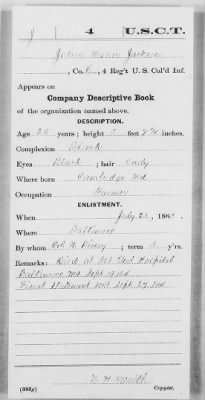 J 4 U.S.C.T.
Jackson
, Co. , 4 Reg't U. S. Col'd Inf.
Appears on
Company Descriptive Book
of the organization named above.
DESCRIPTION.
Age years; height 5 feet inches.
Complexion Black
Eyes Black; hair Curly
Where born Md
Occupation Farmer
ENLISTMENT.
When July , 186
Where Baltimore
By whom Col. Birney; term 3 y'rs.
Remarks: Died at Hospital
Baltimore Md Sept
Final Statement Sept 27
Copyist.